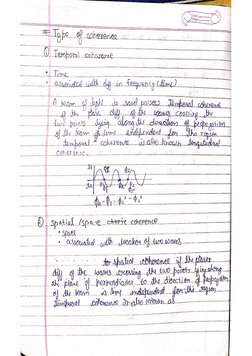 # Type of coherence
① Temporal coherence
• Time
• associated with diff in frequency (time)
A beam of light is said possess Temporal coherence
if the phase diff of the waves crossing the
two points lying along the direction of propagation
of the beam is time independent for this region
temporal coherence is also known longitudinal
coherence.
② Spatial / space coherence
• space
• associated with location of two waves
to spatial coherence if the phase
diff of the waves crossing the two points lying along
the plane perpendicular to the direction of propagation
of the beam is time independent for this region
temporal coherence is also known as